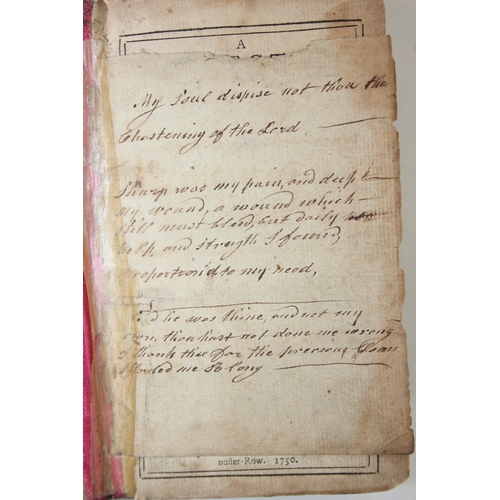 A
My Soul dispise not thou the
Chastening of the Lord
Sharp was my pain, and deep
My wound, a wound which
still must bleed, but daily
help and strength I found,
proportion'd to my need,
he was thine, and not my
own, thou hast not done me wrong
I thank thee for the precious Loan
afforded me so long
noster-Row. 1750.